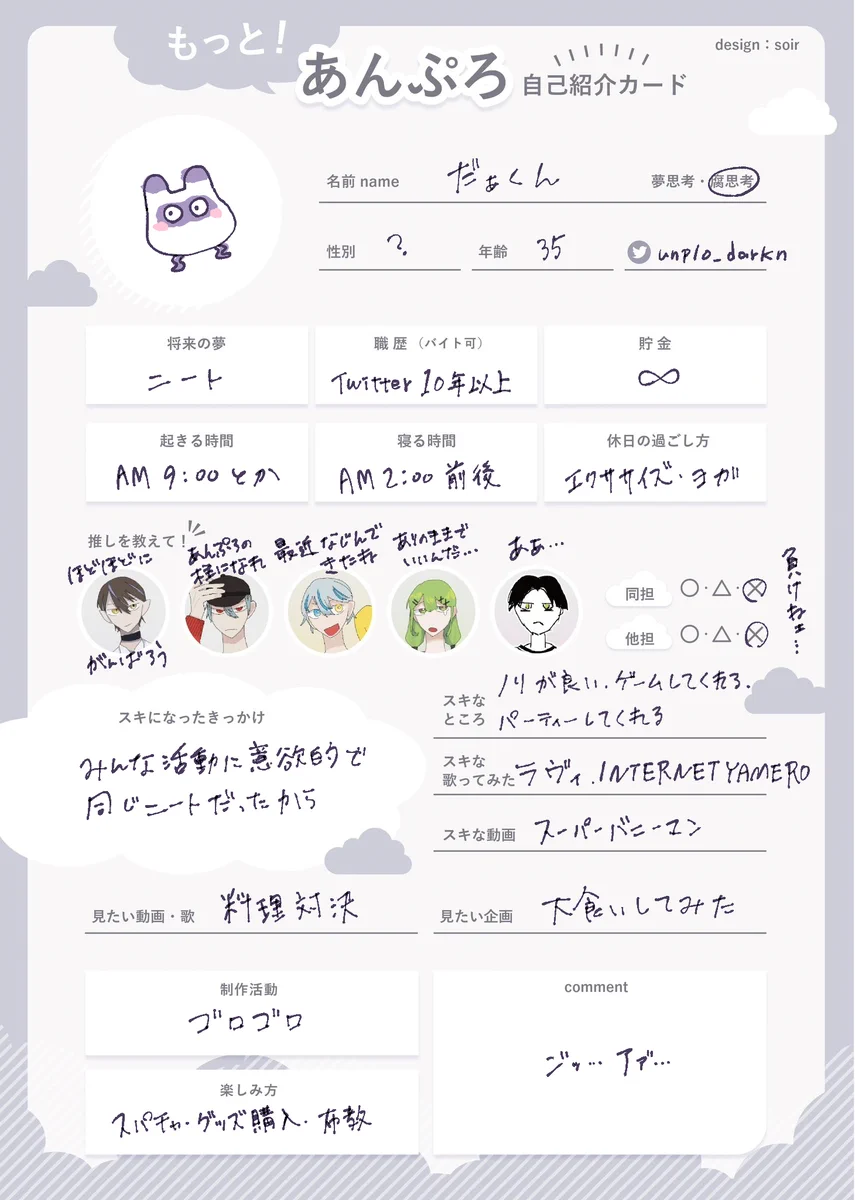 もっと!
design：soir
あんぷろ 自己紹介カード
名前 name だぁくん 夢思考・腐思考
性別 ?. 年齢 35 unplo_darkn
将来の夢
ニート
職歴（バイト可）
Twitter 10年以上
貯金
∞
起きる時間
AM 9:00とか
寝る時間
AM 2:00 前後
休日の過ごし方
エクササイズ・ヨガ
推しを教えて！
ほどほどに
がんばろう
あんぷろの
様になれ
最近なじんで
きたね
ありのままで
いいんだ…
ああ…
同担 〇・△・×
他担 〇・△・×
負けねェ…
スキになったきっかけ
みんな活動に意欲的で
同じニートだったから
スキな
ところ
ノリが良い.ゲームしてくれる.
パーティーしてくれる
スキな
歌ってみた
ラヴィ.INTERNET YAMERO
スキな動画 スーパーバニーマン
見たい動画・歌 料理対決
見たい企画 大食いしてみた
制作活動
ゴロゴロ
楽しみ方
スパチャ・グッズ購入・布教
comment
ジッ… アァ…